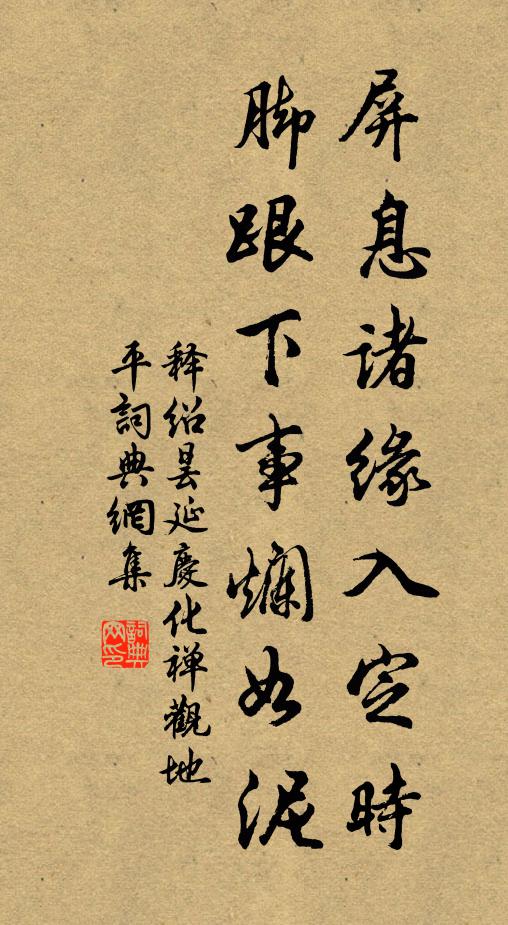 屏息诸缘入定時
脚跟下事爛如泥
释绍昙延慶化禅觀地
平詞典網集
詞典網印